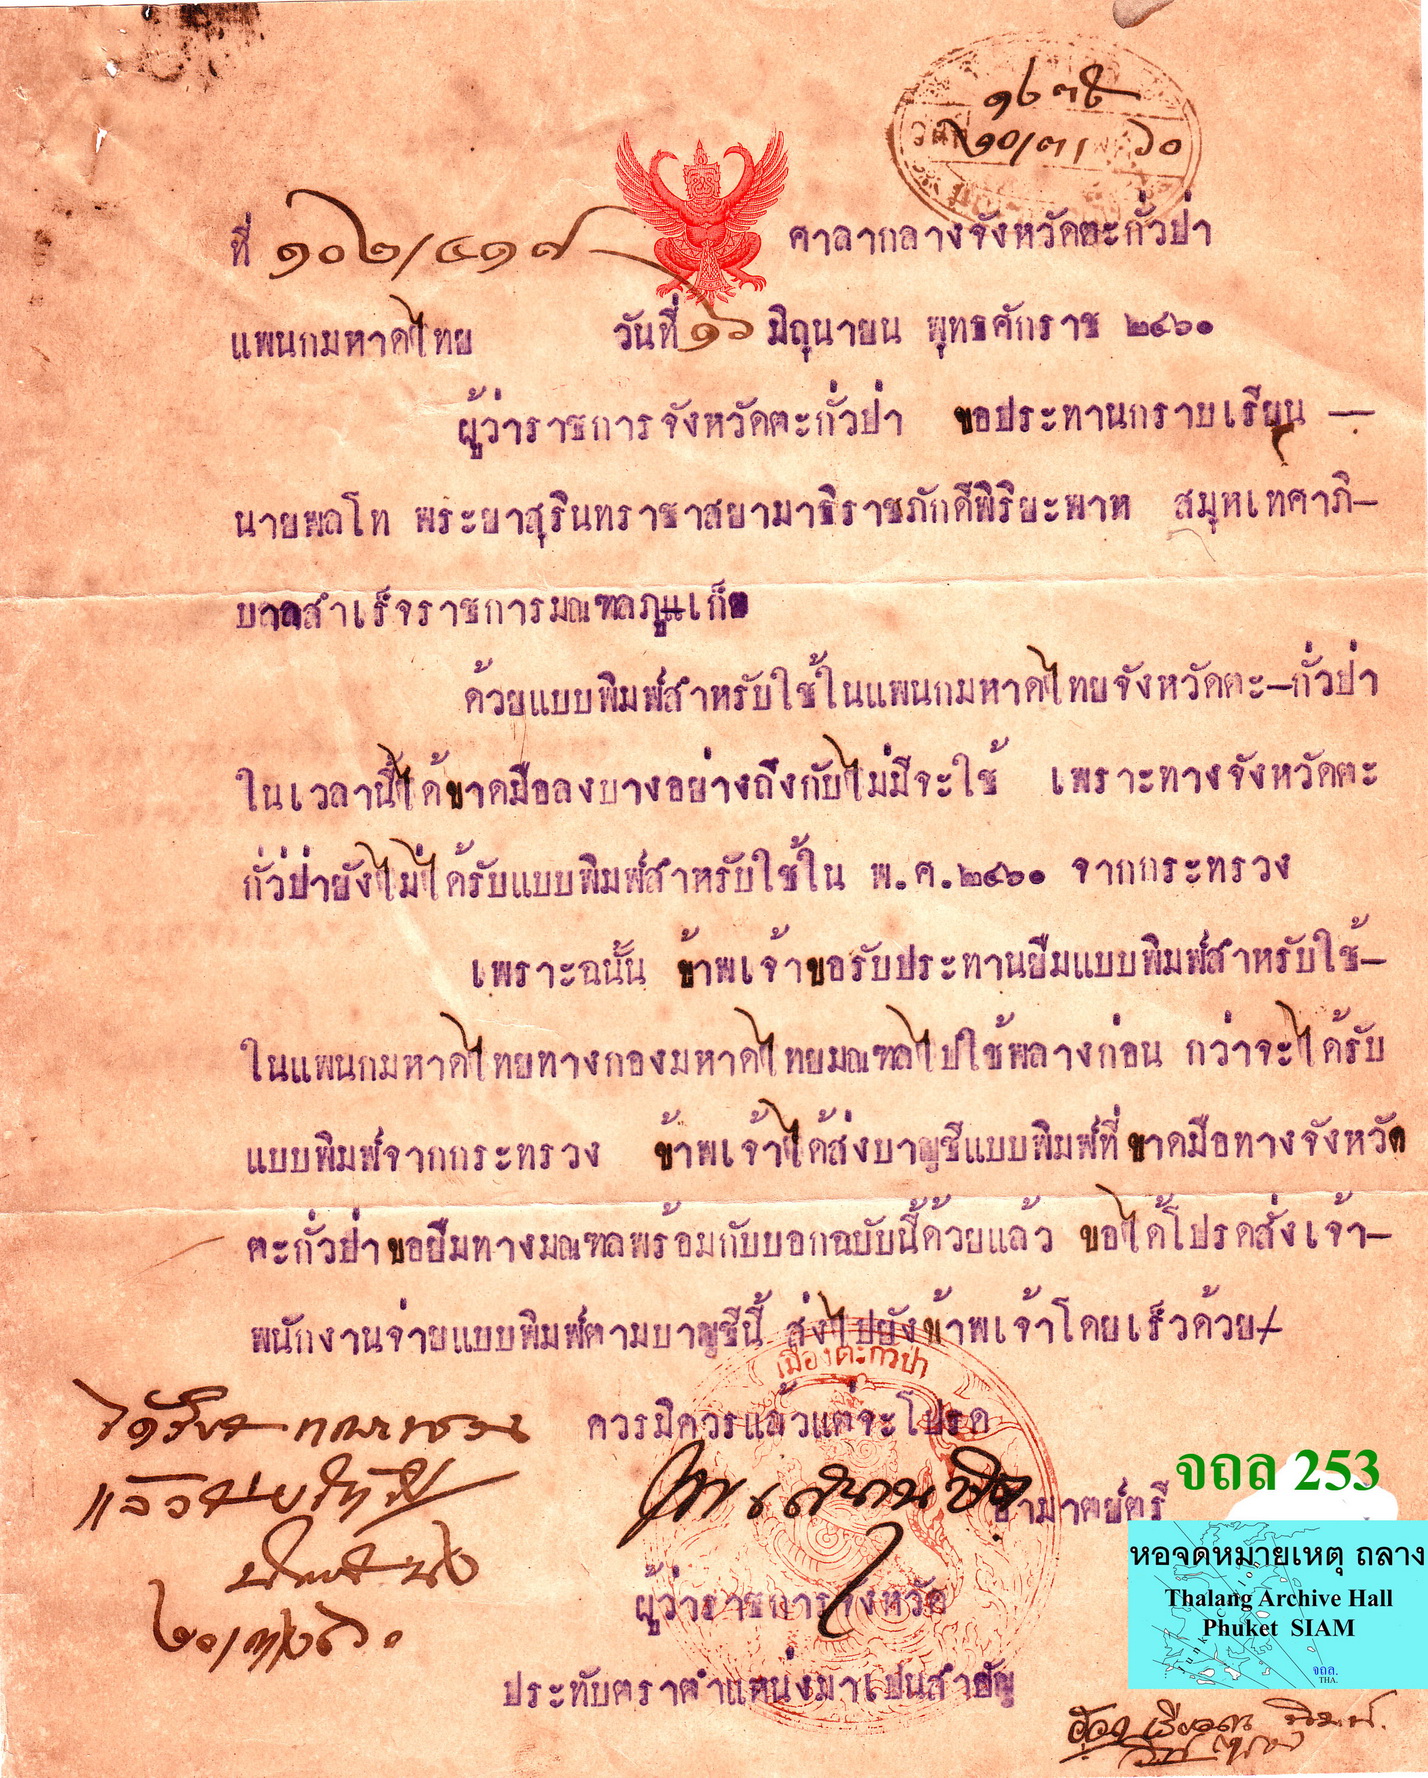 ๑๖๓๕
วันที่ ๒๐/๓/๖๐
ที่ ๑๐๒/๔๑๗ ศาลากลางจังหวัดตะกั่วป่า
แพนกมหาดไทย วันที่ ๑๖ มิถุนายน พุทธศักราช ๒๔๖๐
ผู้ว่าราชการจังหวัดตะกั่วป่า ขอประทานกราบเรียน —
นายพลโท พระยาสุรินทราชาสยามาธิราชภักดีพิริยะพาห สมุหเทศาภิ-
บาลสำเร็จราชการมณฑลภูเก็ต
ด้วยแบบพิมพ์สำหรับใช้ในแพนกมหาดไทยจังหวัดตะ-กั่วป่า
ในเวลานี้ได้ขาดมือลงบางอย่างถึงกับไม่มีจะใช้ เพราะทางจังหวัดตะ
กั่วป่ายังไม่ได้รับแบบพิมพ์สำหรับใช้ใน พ.ศ.๒๔๖๐ จากกระทรวง
เพราะฉนั้น ข้าพเจ้าขอรับประทานยืมแบบพิมพ์สำหรับใช้-
ในแพนกมหาดไทยทางกองมหาดไทยมณฑลไปใช้พลางก่อน กว่าจะได้รับ
แบบพิมพ์จากกระทรวง ข้าพเจ้าได้ส่งบาญชีแบบพิมพ์ที่ขาดมือทางจังหวัด
ตะกั่วป่าขอยืมทางมณฑลพร้อมกับบอกฉบับนี้ด้วยแล้ว ขอได้โปรดสั่งเจ้า-
พนักงานจ่ายแบบพิมพ์ตามบาญชีนี้ ส่งไปยังข้าพเจ้าโดยเร็วด้วย/
เมืองตะกั่วป่า
ควรมิควรแล้วแต่จะโปรด
อำมาตย์ตรี
ผู้ว่าราชการจังหวัด
ประทับตราตำแหน่งมาเปนสำคัญ
จถล 253
หอจดหมายเหตุ ถลาง
Thalang Archive Hall
Phuket SIAM
จถล.
THA.